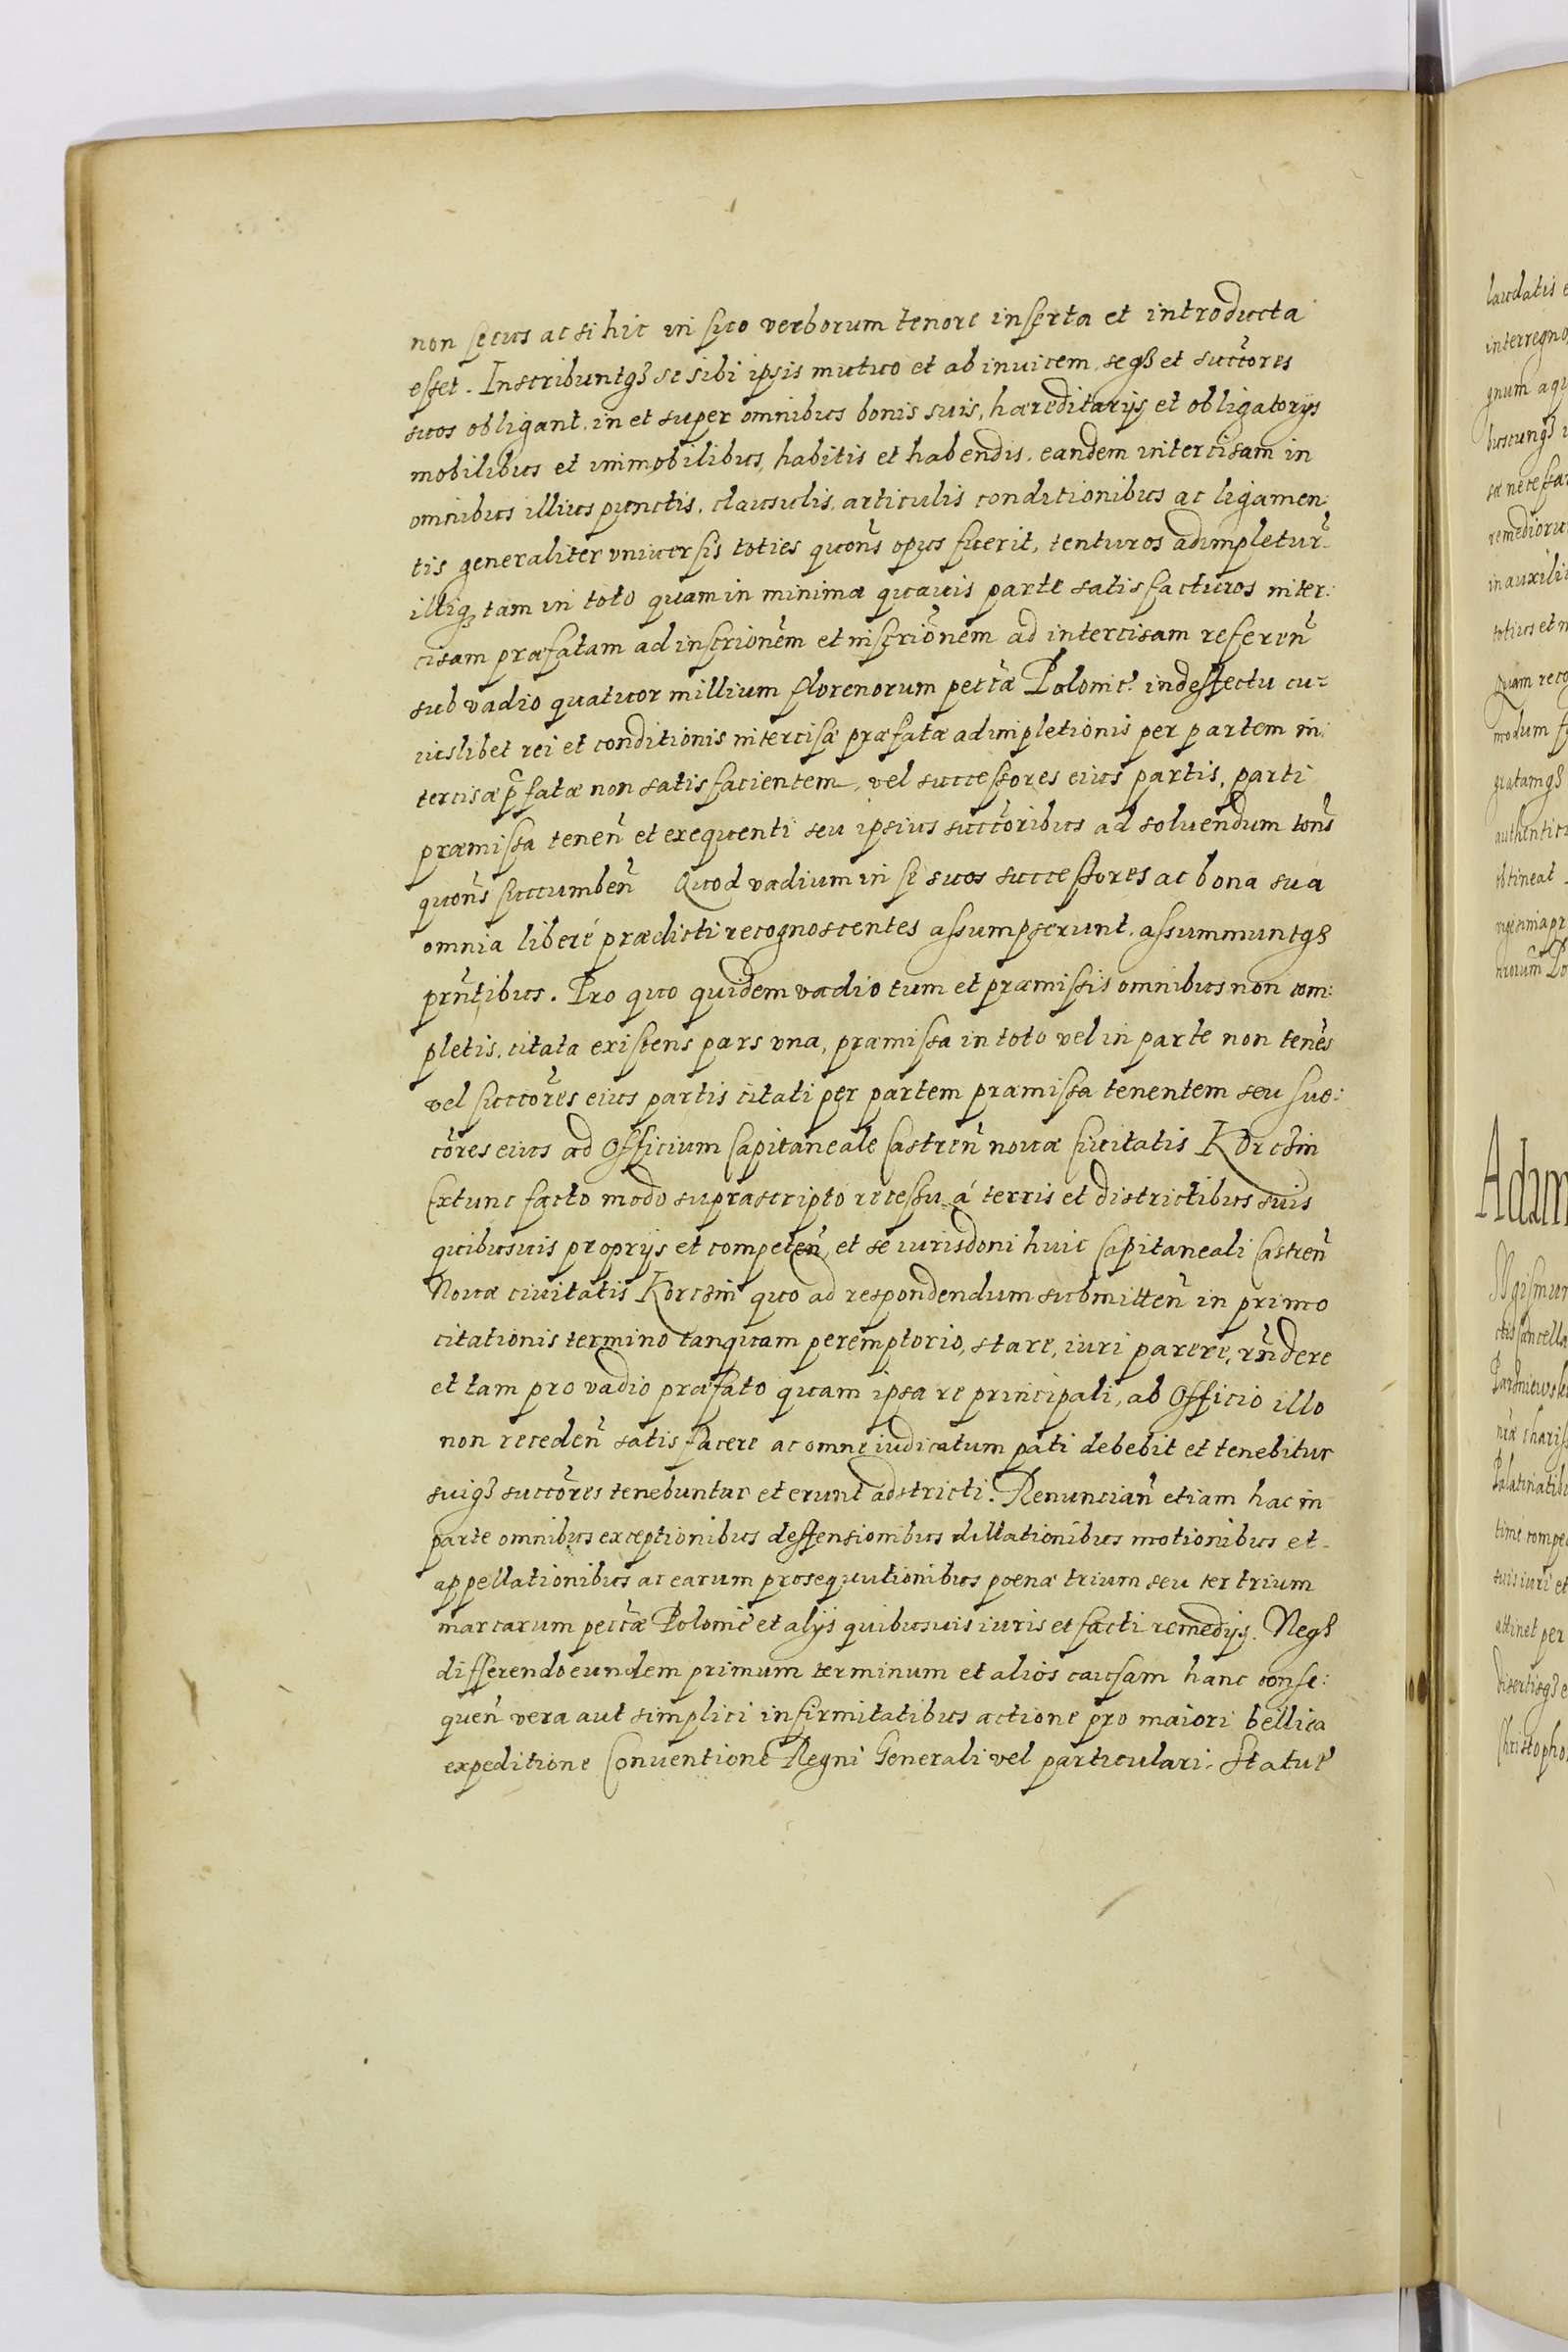 non secus ac si hic in suo verborum tenore inserta et introducta
esset. Inscribuntqȝ se sibi ipsis mutuo et ab inuicem, seqȝ et succ̃ores
suos obligant, in et super omnibus bonis suis, hæreditarijs et obligatorijs
mobilibus et immobilibus, habitis et habendis, eandem intercisam in
omnibus illius punctis, clausulis, articulis conditionibus ac ligamen:
tis generaliter vniuersis toties quoñs opus fuerit, tenturos adimpletur̃
illiqȝ tam in toto quam in minima quauis parte satisfacturos inter:
cisam præfatam ad inscrionẽm et inscriõnem ad intercisam refereñ
sub vadio quatuor millium florenorum pecc̃æ Polonic: in deffectu cu=
iuslibet rei et conditionis intercisæ præfatæ adimpletionis per partem in:
tercisæ p̃fatæ non satisfacientem, vel successores eius partis, parti
præmissa teneñ et exequenti seu ipsius succ̃oribus ad soluendum toñs
quoñs succumbeñ Quod vadium in se suos successores ac bona sua
omnia liberè prædicti recognoscentes assumpserunt, assummuntqȝ
prñtibus. Pro quo quidem vadio tum et præmissis omnibus non com:
pletis, citata existens pars vna, præmissa in toto vel in parte non teñes
vel succc̃ores eius partis citati per partem præmissa tenentem seu suc:
c̃ores eius ad Officium Capitaneale Castreñ nouæ Ciuitatis Korczin
Extunc facto modo suprascripto recessu à terris et districtibus suis
quibusuis proprijs et competeñ, et se iurisdoni huic Capitaneali Castreñ
Nouæ ciuitatis Korczin quo ad respondendum submitteñ in primo
citationis termino tanquam peremptorio, stare, iuri parere, rñdere
et tam pro vadio præfato quam ipsa re principali, ab Officio illo
non recedeñ satisfacere ac omne iudicatum pati debebit et tenebitur
suiqȝ succ̃ores tenebuntur et erunt adstricti. Renunciañ etiam hac in
parte omnibus exceptionibus deffensionibus dillationibus motionibus et
appellationibus ac earum prosequutionibus poenæ trium seu ter trium
marcarum pecc̃æ Polonic̃ et alijs quibusuis iuris et facti remedijs. Neqȝ
differendo eundem primum terminum et alios causam hanc conse:
queñ vera aut simplici infirmitatibus actione pro maiori bellica
expeditione Conuentione Regni Generali vel particulari. Statut̃
laudatis
interregno
gnum aqu
buscunqȝ
sæ necessar
remedioru
in auxili
totius et
Quam reco
modum
gratamqȝ
authentic
obtineat
Adam